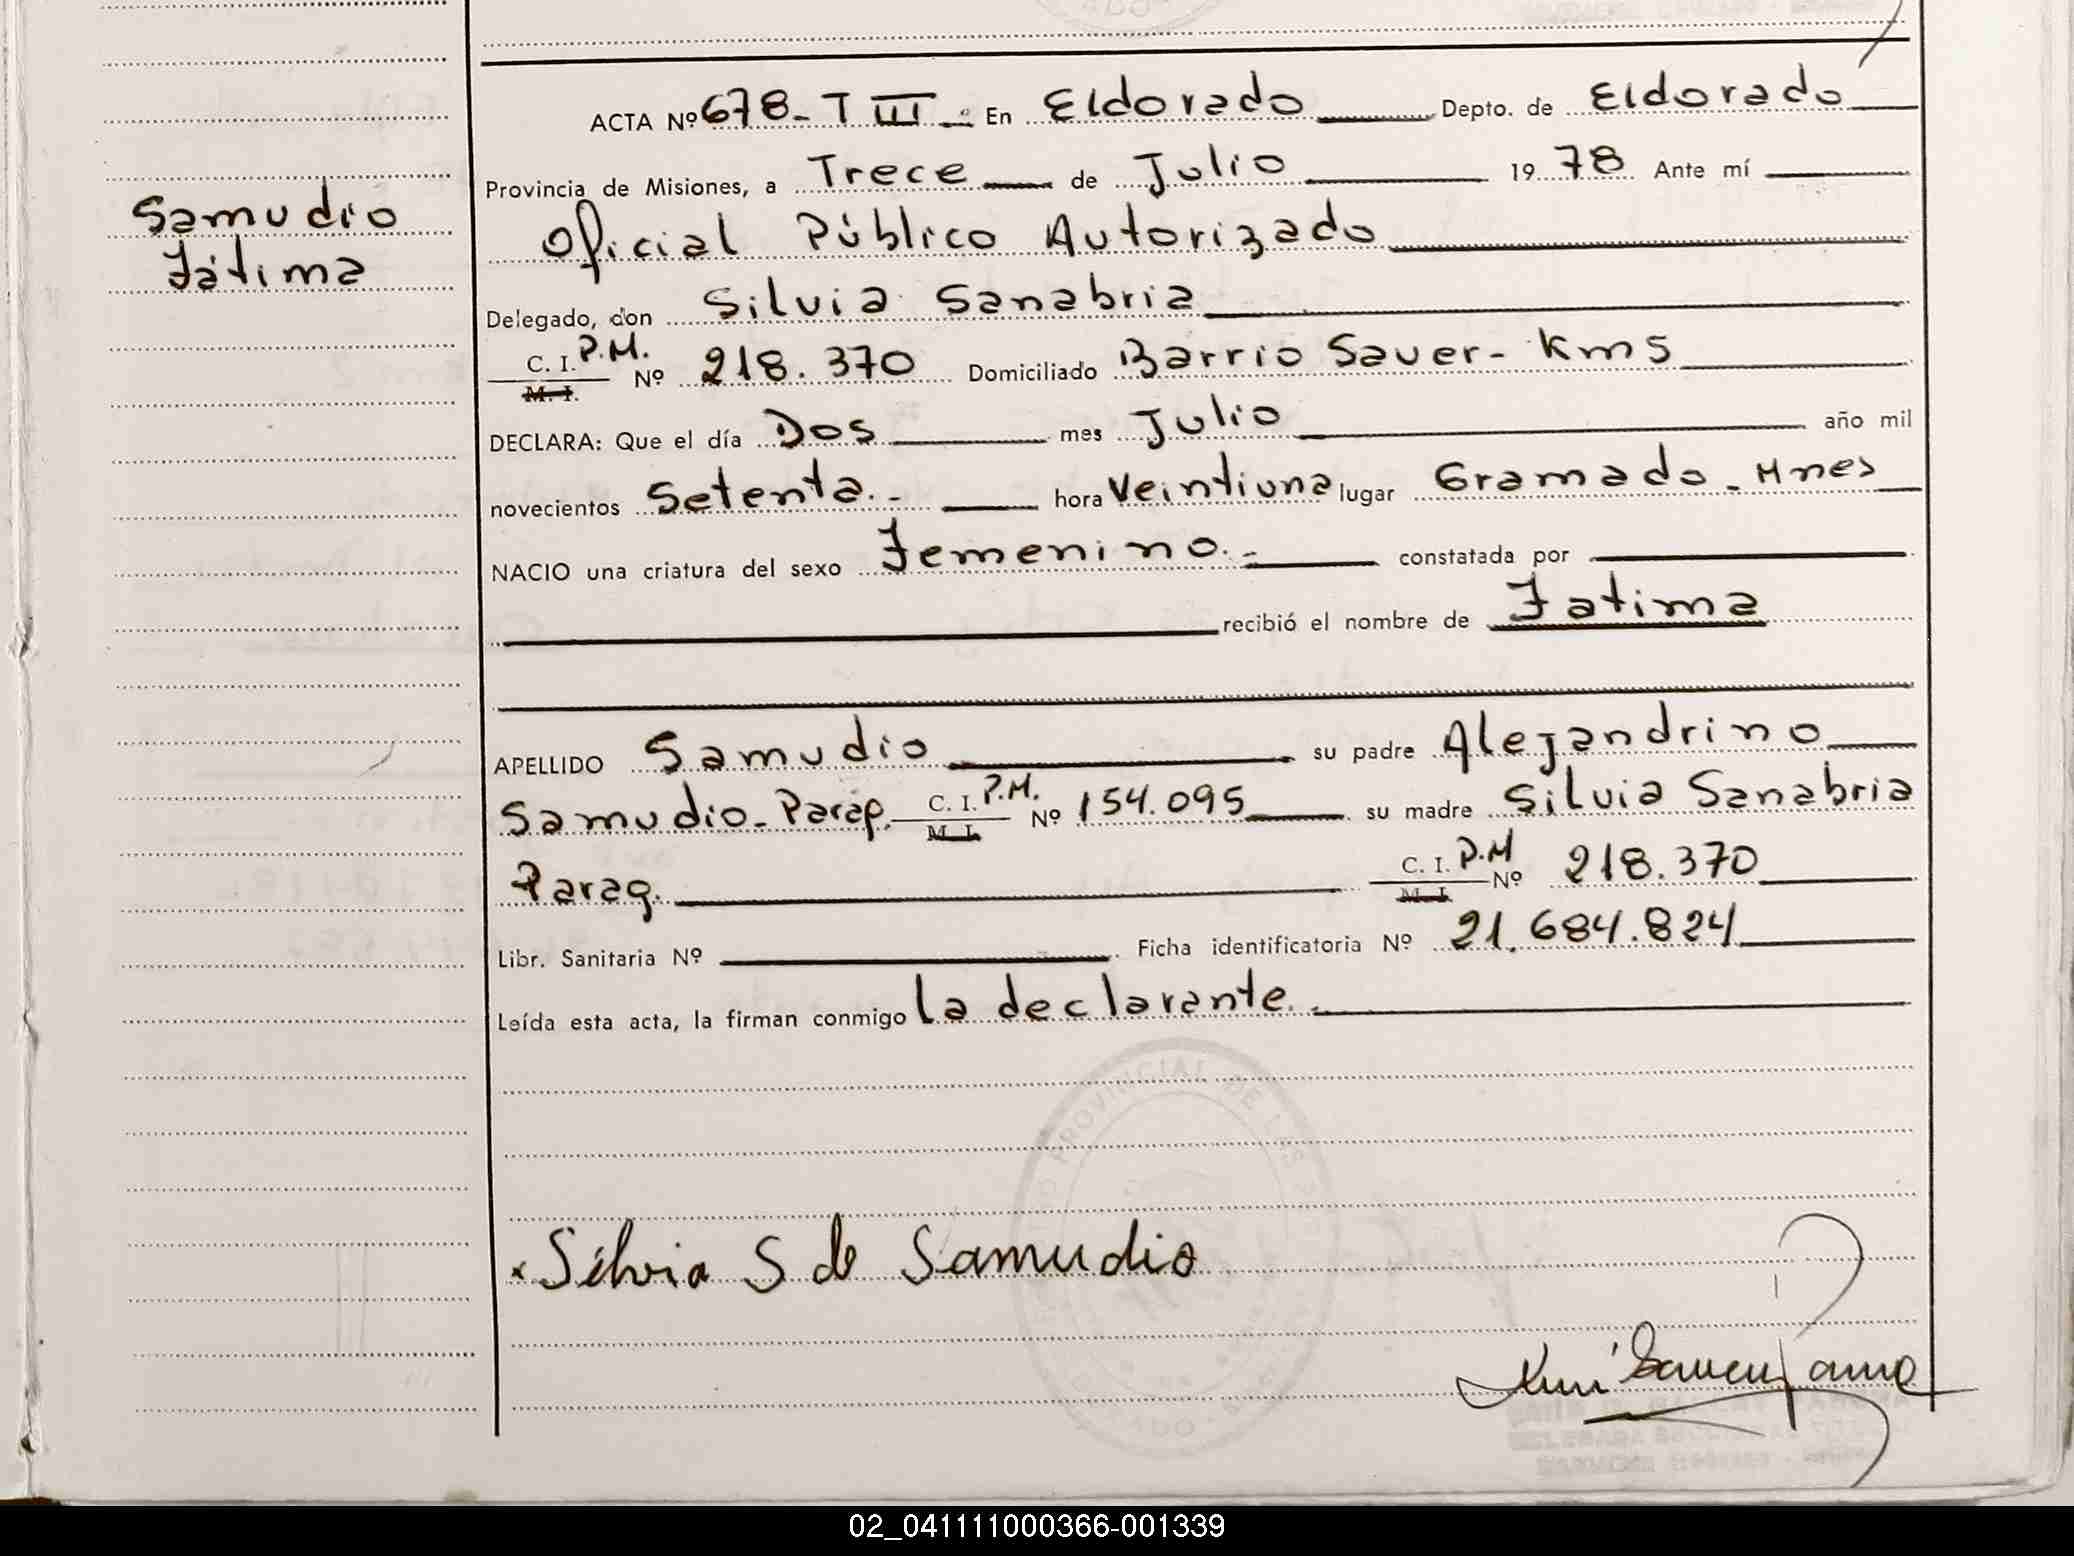 ACTA Nº 678-T III-. En Eldorado Depto. de Eldorado
Provincia de Misiones, a Trece de Julio 1978 Ante mí
Samudio
Fátima
Oficial Público Autorizado
Delegado, don Silvia Sanabria
C. I. P.M.
M. I. Nº 218.370 Domiciliado Barrio Sauer- Km5
DECLARA: Que el día Dos mes Julio año mil
novecientos Setenta.- hora Veintiuna lugar Gramado - Mnes
NACIO una criatura del sexo Femenino.- constatada por
recibió el nombre de Fatima
APELLIDO Samudio su padre Alejandrino
Samudio-Parag. C. I. P.M. M. I. Nº 154.095 su madre Silvia Sanabria
Parag. C. I. P.M M. I. Nº 218.370
Libr. Sanitaria Nº Ficha identificatoria Nº 21.684.824
Leída esta acta, la firman conmigo la declarante.
x Silvia S de Samudio
02_041111000366-001339